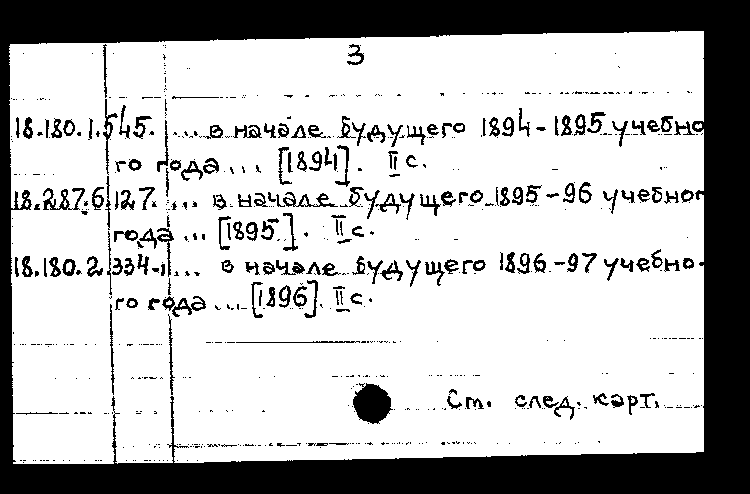 3
18.180.1.545. ... в начале будущего 1894-1895 учебно
го года ... [1894]. II с.
18.287.6.127. ... в начале будущего 1895-96 учебног
года ... [1895]. II с.
18.180.2.334-1 ... в начале будущего 1896-97 учебно-
го года ... [1896] II с.
См. след. карт.